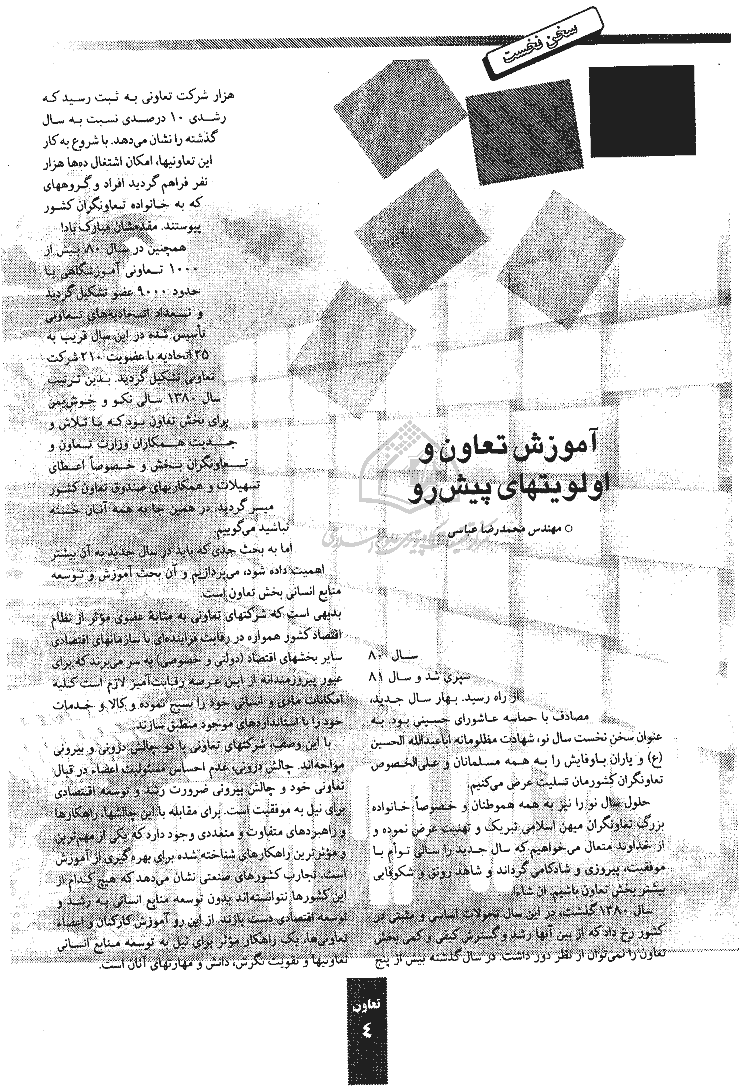 سخن نخست
آموزش تعاون و
اولویتهای پیش‌رو
○ مهندس محمدرضا عباسی
سال ۸۰
سپری شد و سال ۸۱
از راه رسید. بهار سال جدید،
مصادف با حماسه عاشورای حسینی بود. به
عنوان سخن نخست سال نو، شهادت مظلومانه اباعبدالله الحسین
(ع) و یاران باوفایش را به همه مسلمانان و علی‌الخصوص
تعاونگران کشورمان تسلیت عرض می‌کنیم.
حلول سال نو را نیز به همه هموطنان و خصوصاً خانواده
بزرگ تعاونگران میهن اسلامی تبریک و تهنیت عرض نموده و
از خداوند متعال می‌خواهیم که سال جدید را سالی توأم با
موفقیت، پیروزی و شادکامی گرداند و شاهد رونق و شکوفایی
بیشتر بخش تعاون باشیم. ان شاءا...
سال ۱۳۸۰ گذشت، در این سال تحولات اساسی و مثبتی در
کشور رخ داد که از بین آنها رشد و گسترش کیفی و کمی بخش
تعاون را نمی‌توان از نظر دور داشت. در سال گذشته بیش از پنج
هزار شرکت تعاونی به ثبت رسید که
رشدی ۱۰ درصدی نسبت به سال
گذشته را نشان می‌دهد. با شروع به کار
این تعاونیها، امکان اشتغال ده‌ها هزار
نفر فراهم گردید افراد و گروههای
که به خانواده تعاونگران کشور
پیوستند. مقدمشان مبارک باد!
همچنین در سال ۸۰ بیش از
۱۰۰۰ تعاونی آموزشگاهی با
حدود ۹۰۰۰ عضو تشکیل گردید
و تعداد اتحادیه‌های تعاونی
تأسیس شده در این سال قریب به
۳۵ اتحادیه با عضویت ۲۱۰ شرکت
تعاونی تشکیل گردید. بدین ترتیب
سال ۱۳۸۰ سالی نکو و خوش‌یمن
برای بخش تعاون بود که با تلاش و
جدیت همکاران وزارت تعاون و
تعاونگران بخش و خصوصاً اعطای
تسهیلات و همکاریهای صندوق تعاون کشور
میسر گردید. در همین جا به همه آنان خسته
نباشید می‌گوییم.
اما به بحث جدی که باید در سال جدید به آن بیشتر
اهمیت داده شود، می‌پردازیم و آن بحث آموزش و توسعه
منابع انسانی بخش تعاون است.
بدیهی است که شرکتهای تعاونی به مثابهٔ عضوی مؤثر از نظام
اقتصاد کشور همواره در رقابت فزاینده‌ای با سازمانهای اقتصادی
سایر بخشهای اقتصاد (دولتی و خصوصی) به سر می‌برند که برای
عبور پیروزمندانه از این عرصه رقابت‌آمیز لازم است کلیه
امکانات مادی و انسانی خود را بسیج نموده و کالا و خدمات
خود را با استانداردهای موجود منطبق سازند.
با این وصف، شرکتهای تعاونی با دو چالش درونی و بیرونی
مواجه‌اند. چالش درونی، عدم احساس مسئولیت اعضاء در قبال
تعاونی خود و چالش بیرونی ضرورت رشد و توسعه اقتصادی
برای نیل به موفقیت است. برای مقابله با این چالشها، راهکارها
و راهبردهای متفاوت و متعددی وجود دارد که یکی از مهم‌ترین
و مؤثرترین راهکارهای شناخته شده برای بهره گیری از آموزش
است. تجارب کشورهای صنعتی نشان می‌دهد که هیچ کدام از
این کشورها نتوانسته‌اند بدون توسعه منابع انسانی به رشد و
توسعه اقتصادی دست یازند. از این رو آموزش کارکنان و اعضاء
تعاونی‌ها، یک راهکار مؤثر برای نیل به توسعه منابع انسانی
تعاونیها و تقویت نگرش، دانش و مهارتهای آنان است.
تعاون
۴